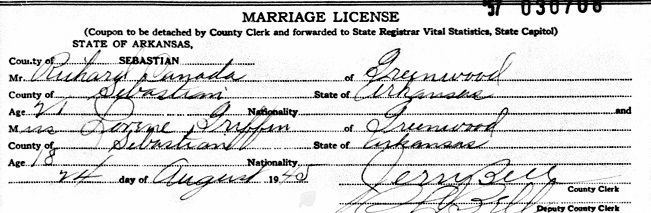 '57 030706
MARRIAGE LICENSE
(Coupon to be detached by County Clerk and forwarded to State Registrar Vital Statistics, State Capitol)
STATE OF ARKANSAS,
County of SEBASTIAN
Mr. Richard Canada of Greenwood
County of Sebastian State of Arkansas
Age 21 Nationality and
Miss Griffin of Greenwood
County of Sebastian State of Arkansas
Age 18 Nationality
24 day of August 1945
Jerry Bell County Clerk
Deputy County Clerk